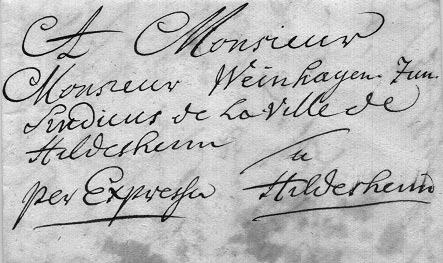 A Monsieur
Monsieur Weinhagen Jun.
Sindicus de La Ville de
Hildesheim
a
per Expressen Hildesheim